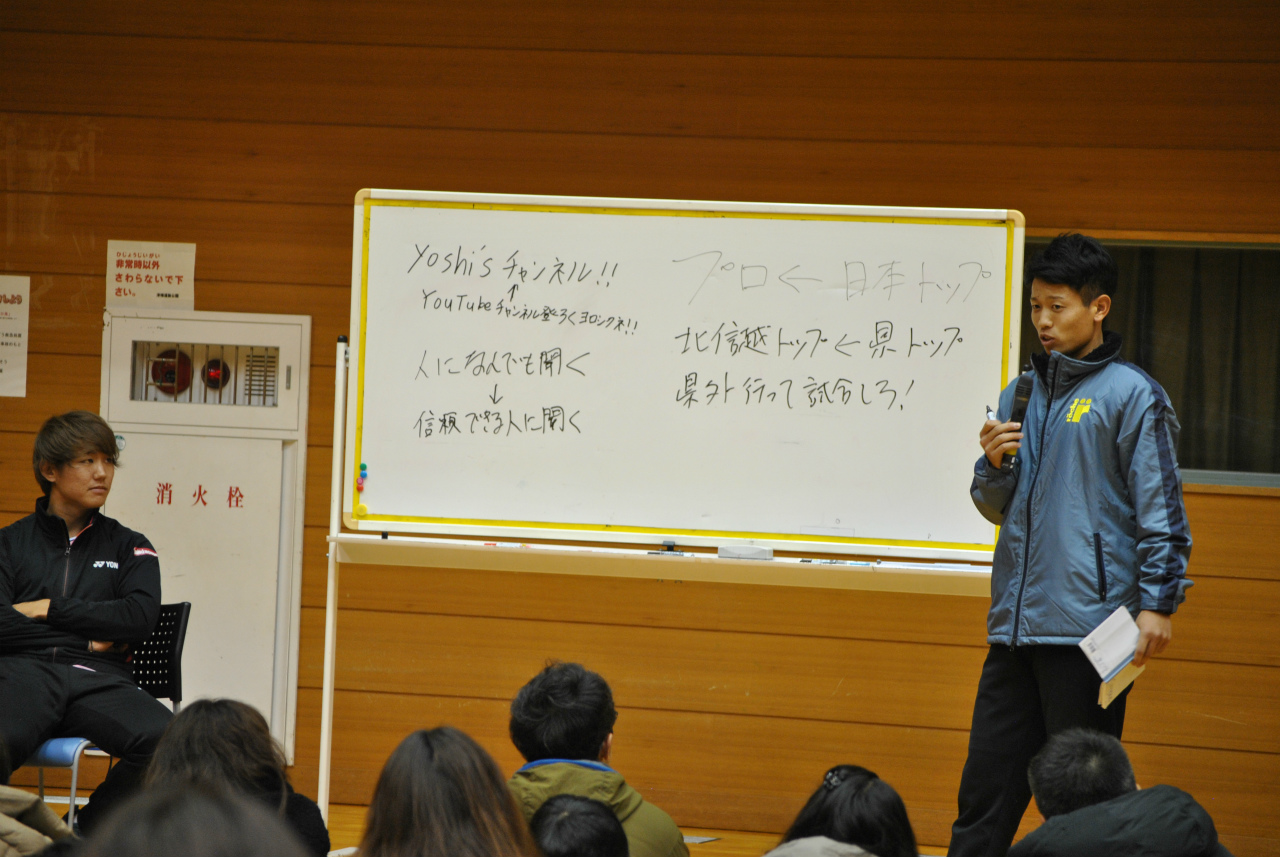 Yoshi's チャンネル!!
↑
YouTube チャンネル登ろくヨロシクネ!!
人になんでも聞く
↓
信頼できる人に聞く
プロ ← 日本トップ
北信越トップ ← 県トップ
県外行って試合しろ!
ひじょうじいがい
非常時以外
さわらないで下
さい。
消火栓
YON